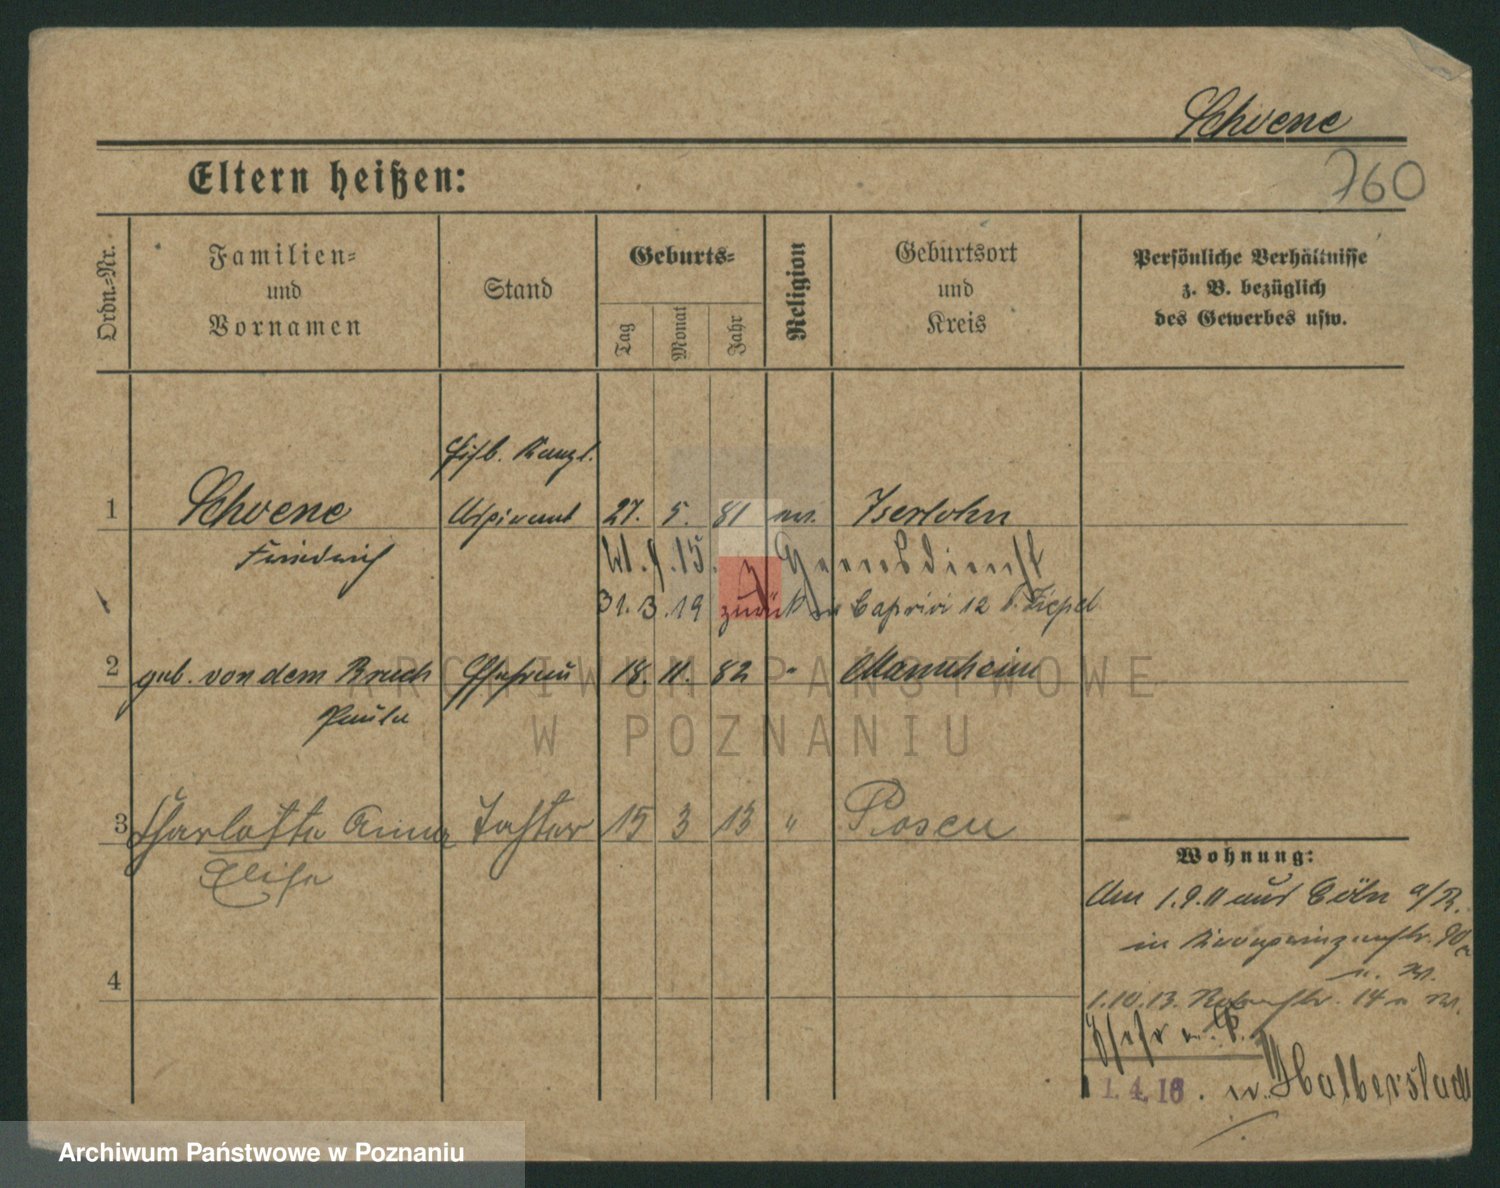 Schoene
760
Eltern heißen:
Ordn.-Nr.
Familien-
und
Vornamen
Stand
Geburts-
Tag
Monat
Jahr
Religion
Geburtsort
und
Kreis
Persönliche Verhältnisse
z. B. bezüglich
des Gewerbes usw.
Eisb. Kanzl.
1 Schoene Aspirant 27. 5. 81 ev. Iserlohn
Friedrich
z Heeresdienst
31. 3. 19 zurück Caprivi 12 b. Ziepel
2 geb. von dem Bruch Ehefrau 18. 11. 82 " Mannheim
Paula
3 Charlotte Anna Tochter 15 3 13 " Posen
Elise
Wohnung:
Am 1.9.11 aus Cöln a/R.
in Kronprinzenstr.
4
1.10.13. 14
1.4.18. n. Halberstadt
ARCHIWUM PAŃSTWOWE
W POZNANIU
Archiwum Państwowe w Poznaniu